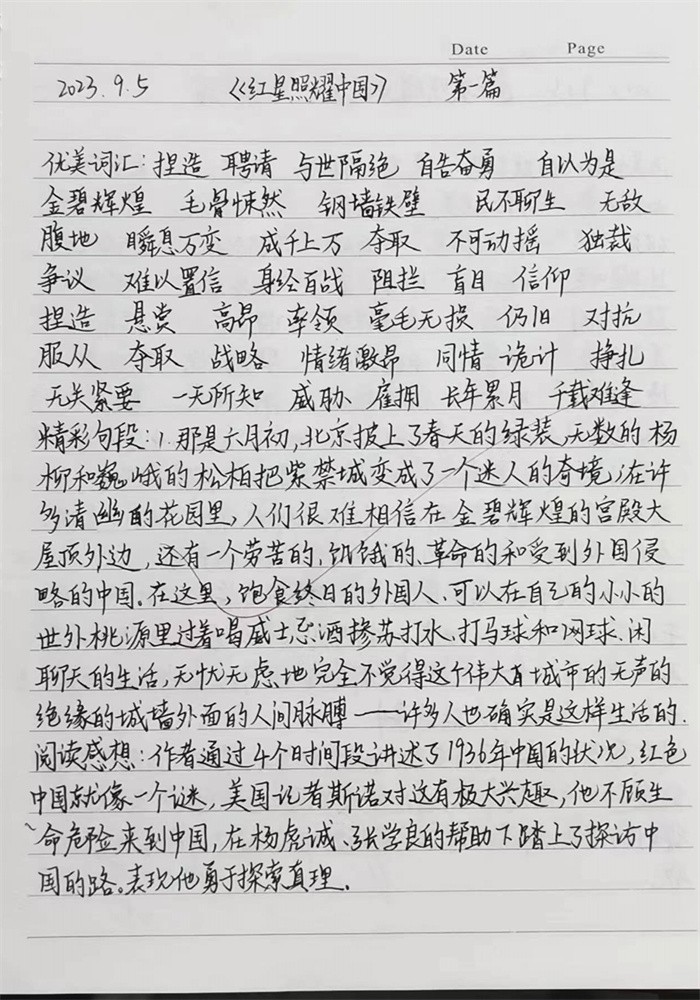 Date Page
2023.9.5 《红星照耀中国》 第一篇
优美词汇：捏造 聘请 与世隔绝 自告奋勇 自以为是
金碧辉煌 毛骨悚然 钢墙铁壁 民不聊生 无敌
腹地 瞬息万变 成千上万 夺取 不可动摇 独裁
争议 难以置信 身经百战 阻拦 盲目 信仰
捏造 悬赏 高昂 率领 毫毛无损 仍旧 对抗
服从 夺取 战略 情绪激昂 同情 诡计 挣扎
无关紧要 一无所知 威胁 雇拥 长年累月 千载难逢
精彩句段：1.那是六月初，北京披上了春天的绿装，无数的杨
柳和巍峨的松柏把紫禁城变成了一个迷人的奇境；在许
多清幽的花园里，人们很难相信在金碧辉煌的宫殿大
屋顶外边，还有一个劳苦的、饥饿的、革命的和受到外国侵
略的中国。在这里，饱食终日的外国人，可以在自己的小小的
世外桃源里过着喝威士忌酒掺苏打水、打马球和网球、闲
聊天的生活，无忧无虑地完全不觉得这个伟大城市的无声的
绝缘的城墙外面的人间脉膊——许多人也确实是这样生活的.
阅读感想：作者通过4个时间段讲述了1936年中国的状况，红色
中国就像一个谜，美国记者斯诺对这有极大兴趣，他不顾生
命危险来到中国，在杨虎诚、张学良的帮助下踏上了探访中
国的路。表现他勇于探索真理.